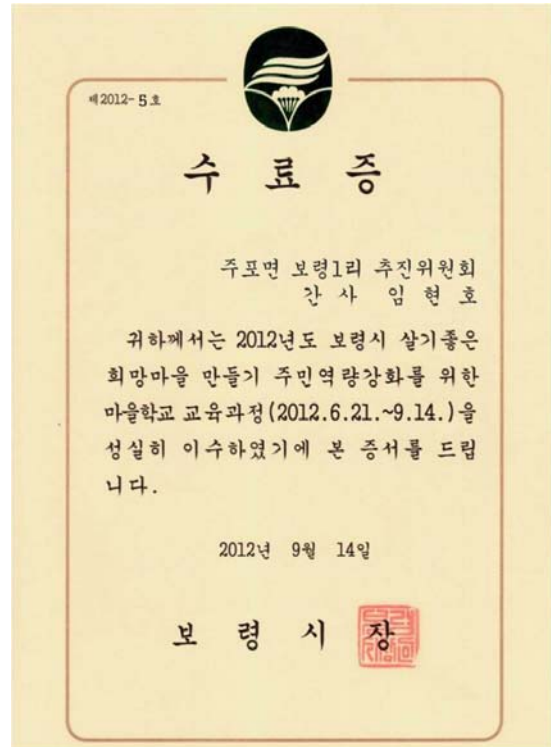 제2012- 5호
수 료 증
주포면 보령1리 추진위원회
간 사 임 현 호
귀하께서는 2012년도 보령시 살기좋은
희망마을 만들기 주민역량강화를 위한
마을학교 교육과정(2012.6.21.~9.14.)을
성실히 이수하였기에 본 증서를 드립
니다.
2012년 9월 14일
보 령 시 장